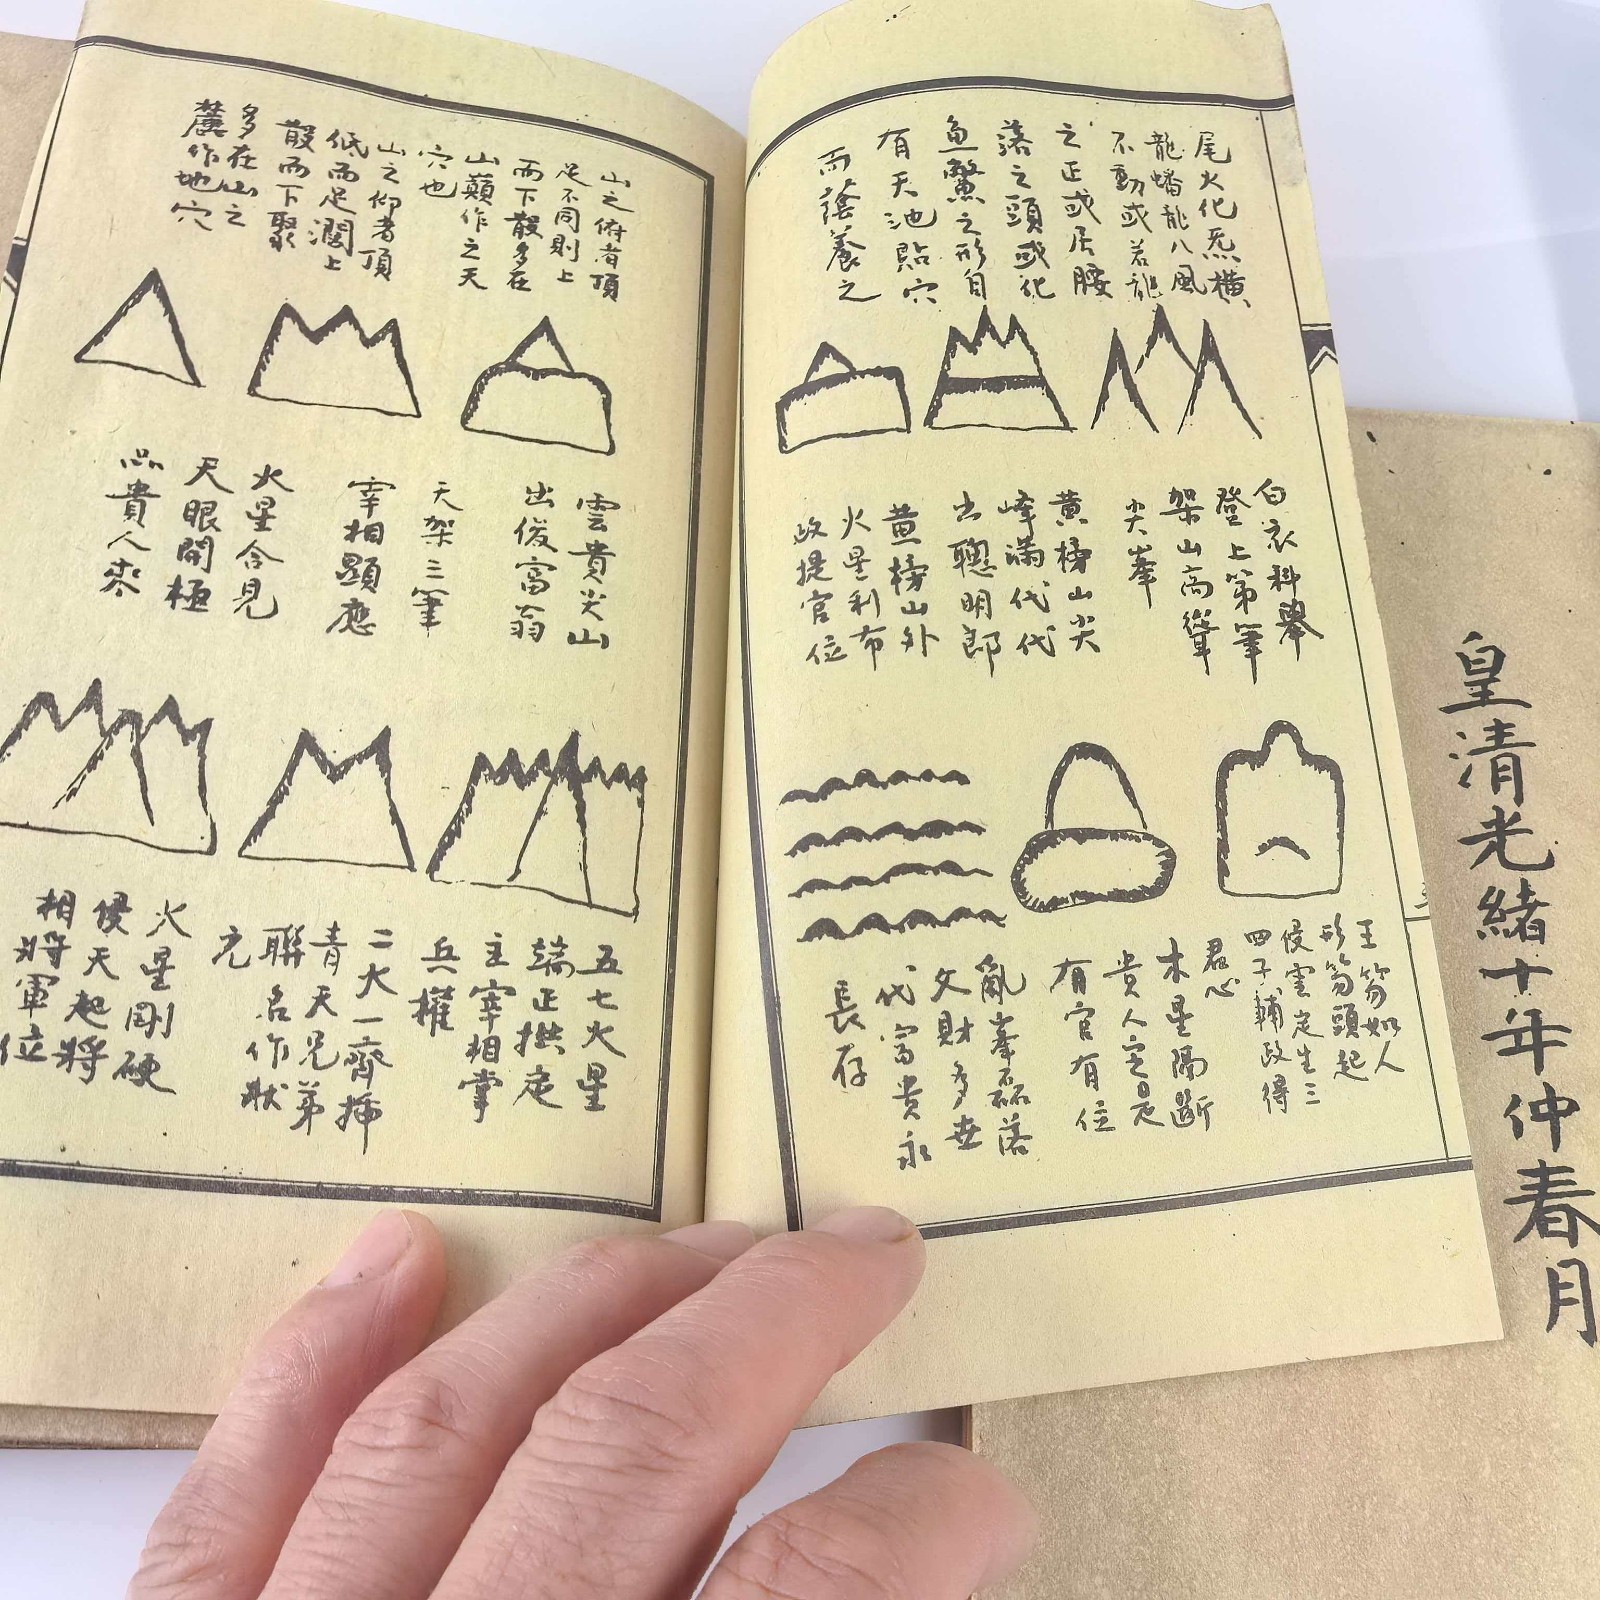 尾火化炁橫
龍蟠龍八風
不動或若龍
之正或居腰
落之頭或化
魚鱉之形自
有天池貼穴
而蔭養之
白衣科舉
登上第筆
架山高聳
尖峯
黃榜山尖
峰滿代代
出聰明郎
黃榜山外
火星利市
政提官位
王笏如人
形笏頭起
侵雲定生三
四子輔政得
君心
木星隔斷
貴人定是
有官有位
亂峯磊落
文財多世
代富贵永
長存
山之俯者頂
足不同則上
而下散多在
山巔作之天
穴也
山之仰者頂
低而足濶上
散而下聚
多在山之
麓作地穴
雲貴尖山
出俊富翁
天架三筆
宰相顯應
火星合見
天眼開極
品貴人來
五七火星
端正拱定
主宰相掌
兵權
二火一齊插
青天兄弟
聯名作狀
元
火星剛硬
侵天起將
相將軍位
皇清光緒十年仲春月